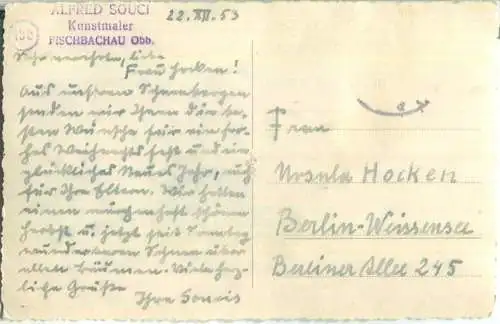 ALFRED SOUCI
Kunstmaler
FISCHBACHAU Obb.
22. XII. 53
Sehr verehrte, liebe
Frau Hocken!
Aus unseren Schneebergen
senden wir Ihnen die be-
sten Wünsche für ein fro-
hes Weihnachtsfest und ein
glückliches Neues Jahr, auch
für Ihre Eltern. Wir hatten
einen märchenhaft schönen
Herbst u. jetzt seit Sonntag
wunderbaren Schnee über
allen Bäumen. Viele herz-
liche Grüße
Ihre Soucis
Frau
Ursula Hocken
Berlin-Weissensee
Berliner Allee 245